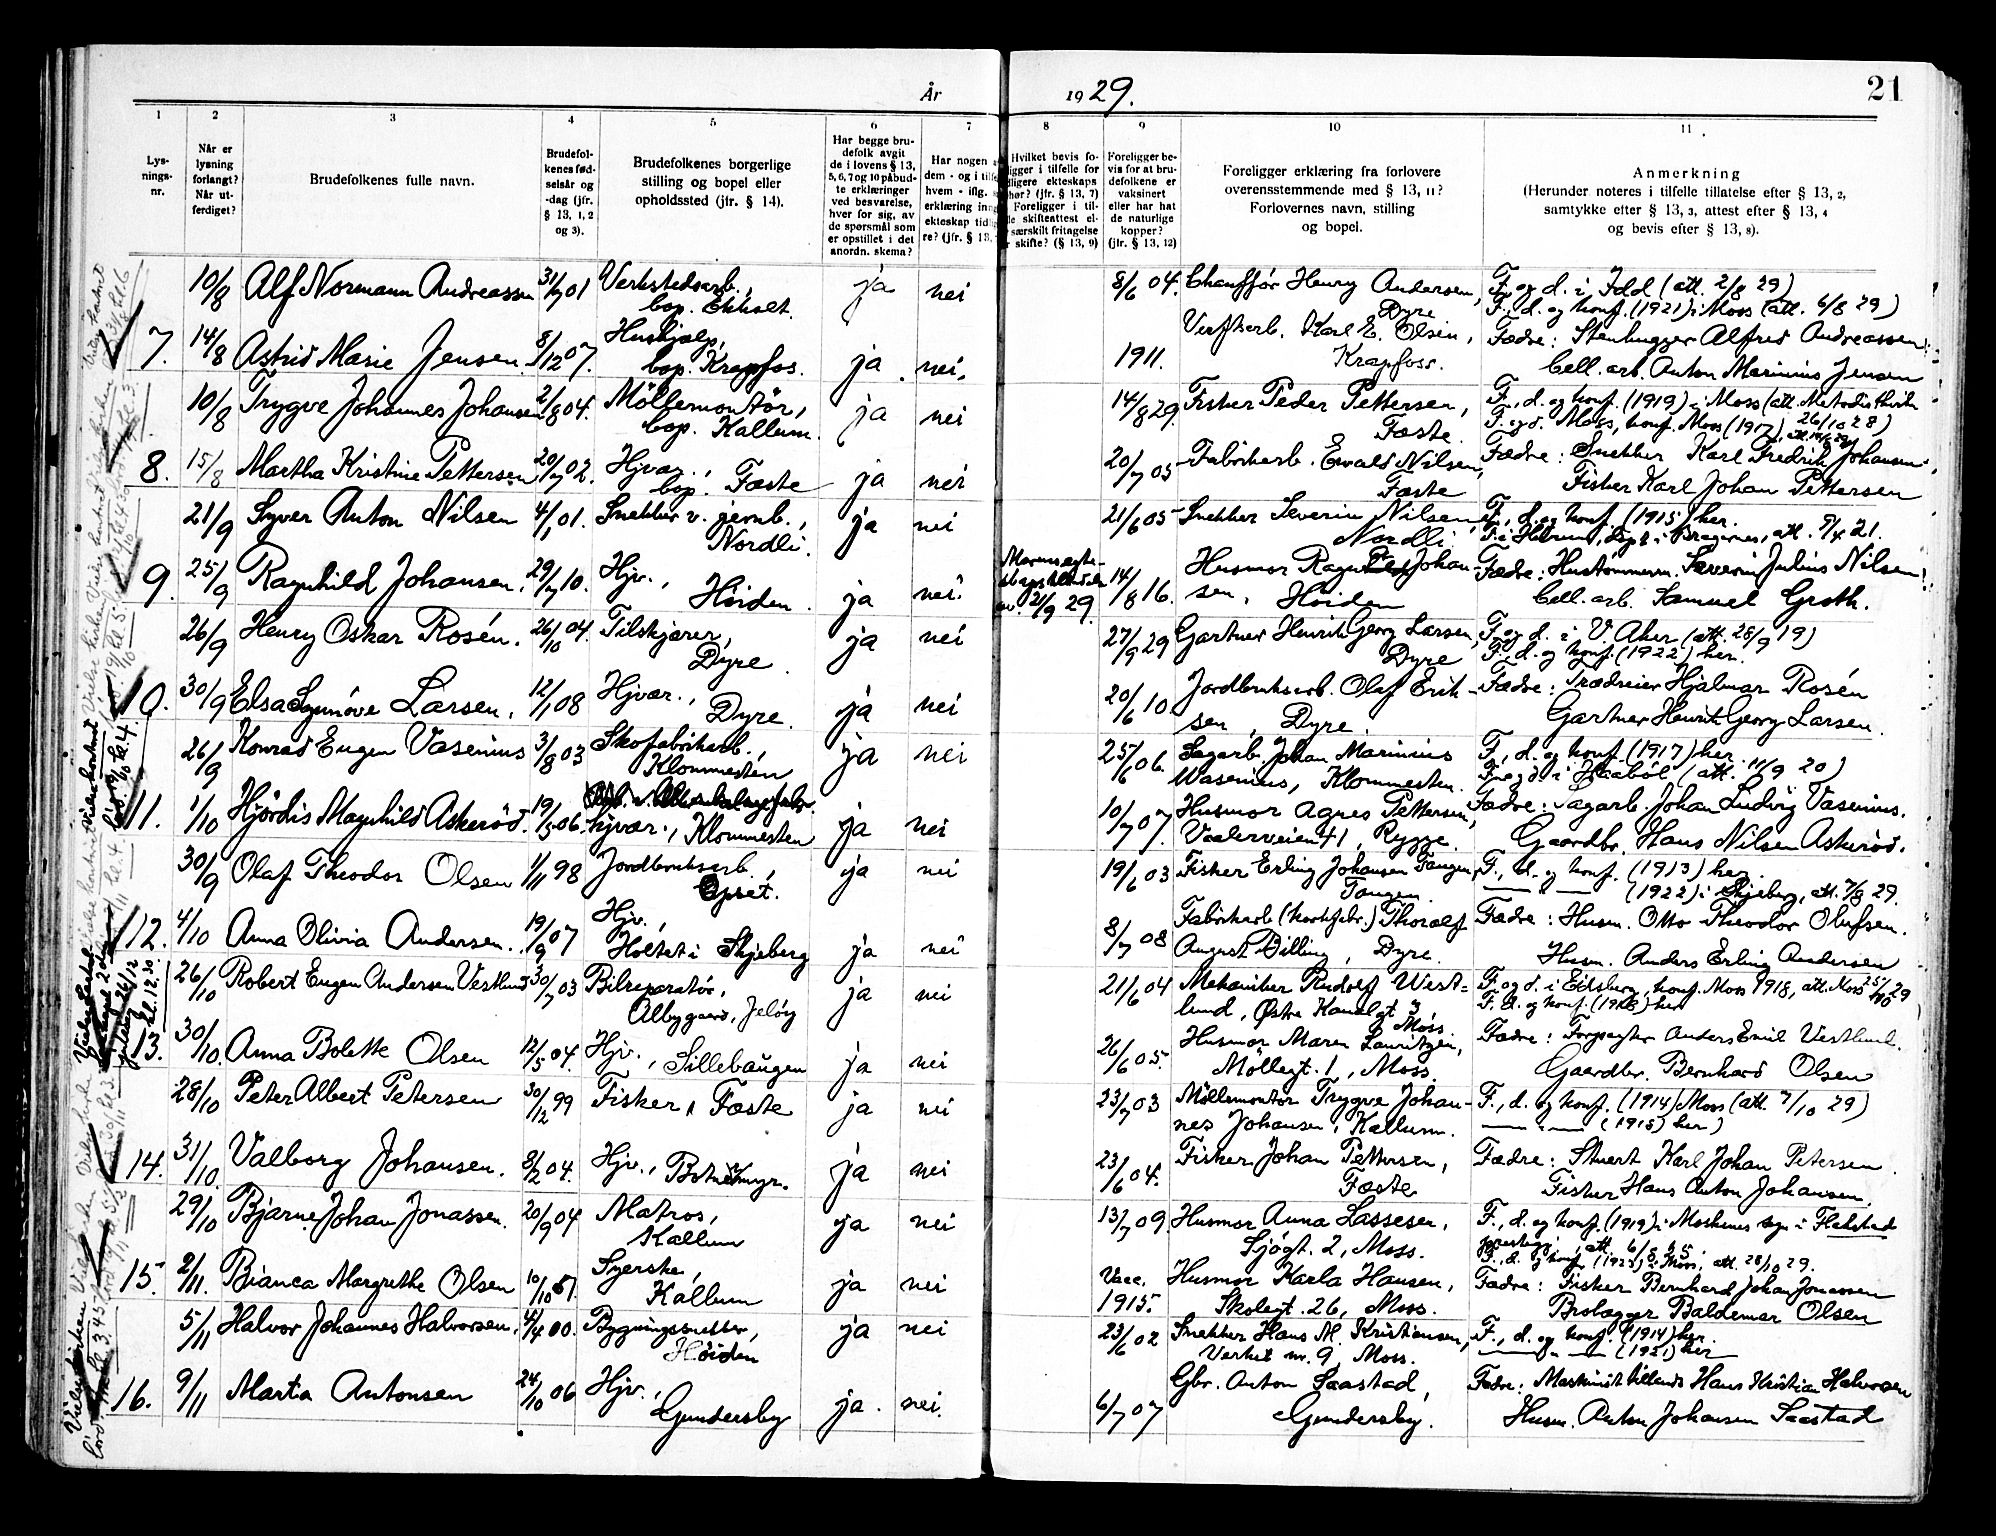 År 1929.
21
1
2
3
4
5
6
7
8
9
10
11
Lys-
nings-
nr.
Når er
lysning
forlangt?
Når ut-
ferdiget?
Brudefolkenes fulle navn.
Brudefol-
kenes fød-
selsår og
-dag (jfr.
§ 13, 1, 2
og 3).
Brudefolkenes borgerlige
stilling og bopel eller
opholdssted (jfr. § 14).
Har begge bru-
defolk avgit
de i lovens § 13,
5, 6, 7 og 10 påbud-
te erklæringer
ved besvarelse,
hver for sig, av
de spørsmål som
er opstillet i det
anordn. skema?
Har nogen
dem - og i
hvem - iflg.
erklæring
ekteskap
re? (jfr. § 13,
Hvilket bevis fo-
ligger i tilfelle for
ligere ekteskaps
hør? (jfr. § 13, 7)
Foreligger i til-
skifteattest el-
særskilt fritagelse
skifte? (§ 13, 9)
Foreligger be-
vis for at bru-
defolkene er
vaksinert
eller har hat
de naturlige
kopper?
(jfr. § 13, 12)
Foreligger erklæring fra forlovere
overensstemmende med § 13, 11?
Forlovernes navn, stilling
og bopel.
Anmerkning
(Herunder noteres i tilfelle tillatelse efter § 13, 2,
samtykke efter § 13, 3, attest efter § 13, 4
og bevis efter § 13, 8).
10/8 Alf Normann Andreassen 31/7 01 Verkstedsarb., ja nei 8/6 04. Chauffør Henry Andersen, F. og d. i Idd (att. 2/8 29)
bop. Ekholt. Dyre F., d. og konf. (1921) i Moss (att. 6/8 29)
7. 14/8 Astrid Marie Jensen. 8/12 07. Hushjelp, ja nei. 1911. Verftarb. Karl E. Olsen, Fædre: Stenhugger Alfred Andreassen
bop. Krapfos. Krapfoss. Cell. arb. Anton Marinius Jensen
10/8 Trygve Johannes Johansen 2/8 04. Möllemontör, ja nei 14/8 29. Fisker Peder Pettersen, F., d. og konf. (1919) i Moss (att. Metodistkirken
bop. Kallum. Fæste. F. og d. Moss, konf. Moss (1917) 26/10 28)
8. 15/8 Martha Kristine Pettersen 20/7 02. Hjvær., ja nei 20/7 05 Fabrikarb. Ewald Nilsen, Fædre: Snekker Karl Fredrik Johansen
bop. Fæste Fæste Fisker Karl Johan Pettersen
21/9 Syver Anton Nilsen 4/1 01. Snekker v. jernb., ja nei 21/6 05 Snekker Severin Nilsen F., d. og konf. (1915) her.
Nordli. Nordli
9. 25/9 Ragnhild Johansen. 29/7 10. Hjv., ja nei. 21/9 29. 14/8 16. Husmor Ragnhild Johan- Fædre: Hustømmerm. Severin Julius Nilsen
Höiden. sen, Höiden Cell. arb. Samuel Groth.
26/9 Henry Oskar Rosén. 26/10 04. Tilskjærer, ja nei 27/9 29 Gartner Henrik Georg Larsen, F. og d. i V. Aker (att. 28/9 19)
Dyre. Dyre F., d. og konf. (1922) her.
10. 30/9 Elsa Synnöve Larsen. 12/1 08 Hjvær., ja nei 20/6 10. Jordbruksarb. Olaf Erik- Fædre: Trædreier Hjalmar Rosén
Dyre. sen, Dyre. Gartner Henrik Georg Larsen.
26/9 Konrad Eugen Vasenius 3/8 03 Skofabrikarb., ja nei 25/6 06. Sagarb. Johan Marinius F., d. og konf. (1917) her.
Klommestén Wasenius, Klommesten. F. og d. i Haaböl (att. 11/9 20)
11. 1/10 Hjördis Magnhild Askeröd. 19/5 06. Hjvær., Klommesten ja nei 10/7 07. Husmor Agnes Pettersen, Fædre: Sagarb. Johan Ludvig Vasenius.
Vaalerveien 41, Rygge. Gaardbr. Hans Nilsen Askeröd.
30/9 Olaf Theodor Olsen 1/11 98 Jordbruksarb., ja nei 19/6 03 Fisker Erling Johansen Tangen, F., d. og konf. (1913) her.
Opsét. Tangen (1922) i Skjeberg, att. 7/8 29.
12. 4/10 Anna Olivia Andersen. 19/9 07 Hjv., ja nei 8/7 08 Fabrikarb (korkfabr.) Thoralf Fædre: Husm. Otto Theodor Olufsen.
Holtet i Skjeberg August Billing, Dyre. Husm. Anders Erling Andersen
26/10 Robert Eugen Andersen Vestlund 30/7 03 Bilreparatör, ja nei 21/6 04 Mekaniker Rudolf West- F. og d. i Eidsberg, konf. Moss 1918, att. Moss 25/10 29
Alby gaard, Jelöy lund, Østre Kanalgt 3, Moss.
13. 30/10. Anna Bolette Olsen 12/5 04. Hjv., Sillebaugen ja nei 26/6 05. Husmor Maren Lauritzen, Fædre: Forpagter Anders Emil Vestlund.
Möllegt. 1, Moss. Gaardbr. Bernhard Olsen
28/10 Peter Albert Petersen 30/12 99 Fisker, Fæste ja nei 23/7 03 Möllemontör Trygve Johan- F., d. og konf. (1914) Moss (att. 7/10 29)
nes Johansen, Kallum. (1915) her)
14. 31/10. Valborg Johansen. 8/2 04. Hjv., ja nei 23/6 04. Fisker Johan Pettersen, Fædre: Stuert Karl Johan Petersen.
Fæste Fisker Hans Anton Johansen.
29/10 Bjarne Johan Jonassen. 20/9 04 Matros, ja nei 13/7 09. Husmor Anna Lassesen, F., d. og konf. (1919) i Moskenes sogn i Flakstad
Kallum Sjögt. 2, Moss.
15. 2/11. Bianca Margrethe Olsen 10/10 Syerske, ja nei Vacc. 1915. Husmor Karla Hansen, Fædre: Fisker Bernhard Johan Jonassen
Kallum Skolegt. 26, Moss. Brolægger Baldemar Olsen
5/11 Halvor Johannes Halvorsen. 4/4 00. Bygningssnekker, ja nei 23/6 02 Snekker Hans M. Kristiansen, F., d. og konf. (1914) her.
Höiden Verket nr. 9, Moss. (1921) her
16. 9/11 Marta Antonsen 24/10 06 Hjv., ja. nei. 6/7 07 Gbr. Anton Saastad, Fædre: Maskinist Hans Kristian Halvorsen
Gundersby Gundersby. Husm. Anton Johansen Saastad